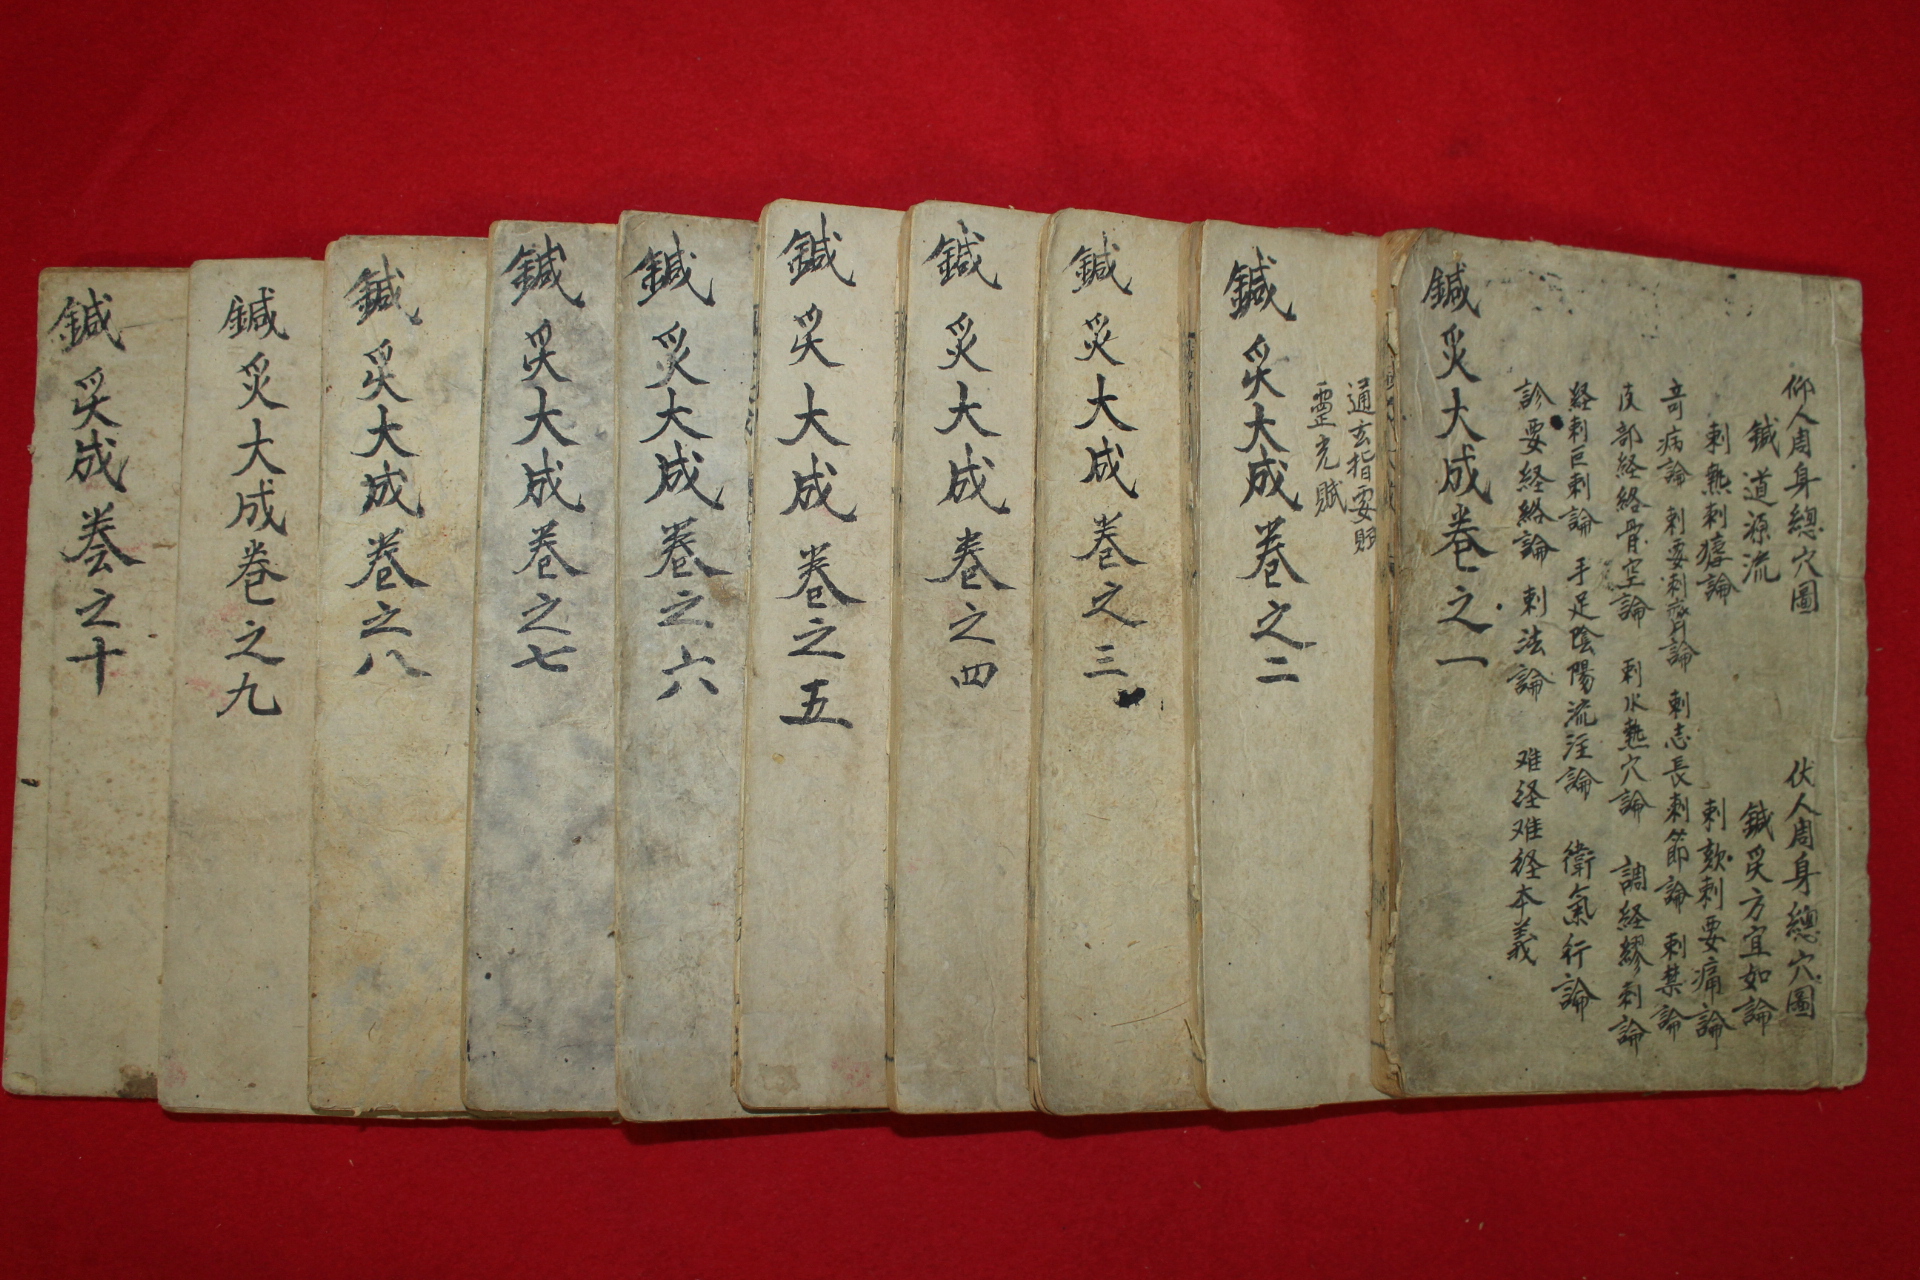 仰人周身總穴圖 伏人周身總穴圖
鍼道源流 鍼灸方宜如論
刺熱刺瘧論 刺欬刺要痛論
奇病論 刺要刺齊論 刺志長刺節論 刺禁論
皮部経絡骨空論 刺水熱穴論 調経繆刺論
経刺巨刺論 手足陰陽流注論 衛氣行論
診要経絡論 刺法論 难経难経本義
鍼灸大成卷之一
通玄指要賦
靈光賦
鍼灸大成卷之二
鍼灸大成卷之三
鍼灸大成卷之四
鍼灸大成卷之五
鍼灸大成卷之六
鍼灸大成卷之七
鍼灸大成卷之八
鍼灸大成卷之九
鍼灸大成卷之十